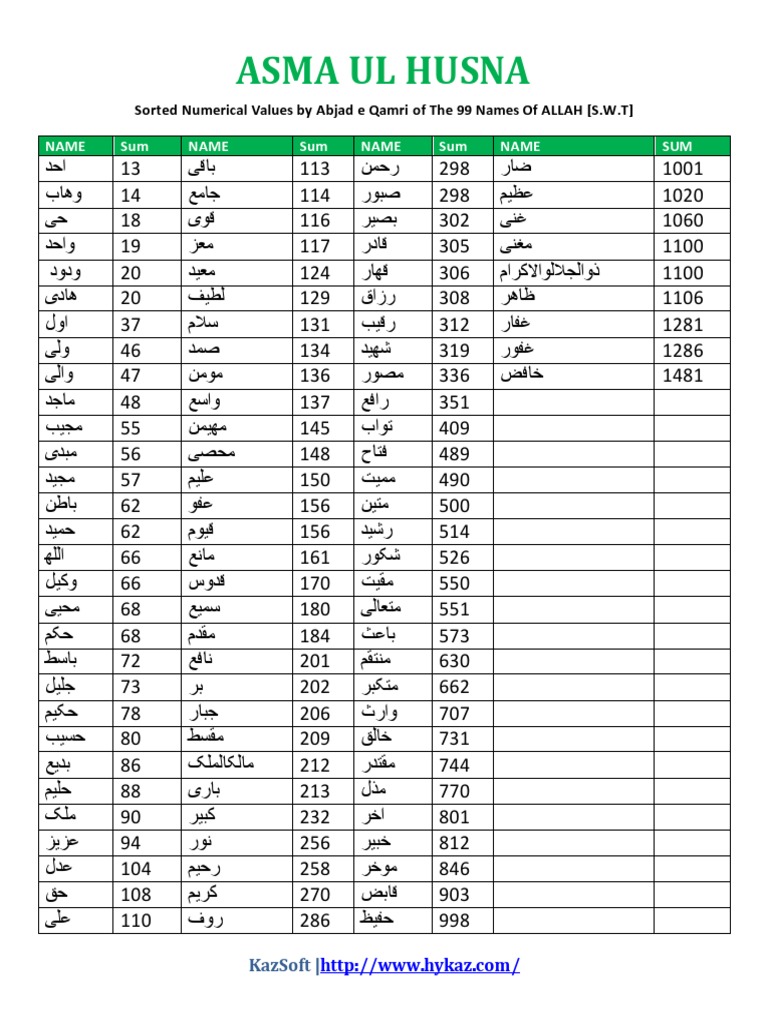 ASMA UL HUSNA
Sorted Numerical Values by Abjad e Qamri of The 99 Names Of ALLAH [S.W.T]
NAME Sum NAME Sum NAME Sum NAME SUM
احد 13 باقی 113 رحمن 298 ضار 1001
وھاب 14 جامع 114 صبور 298 عظیم 1020
حی 18 قوی 116 بصیر 302 غنی 1060
واحد 19 معز 117 قادر 305 مغنی 1100
ودود 20 معید 124 قھار 306 ذوالجلالوالاکرام 1100
ھادی 20 لطیف 129 رزاق 308 ظاھر 1106
اول 37 سلام 131 رقیب 312 غفار 1281
ولی 46 صمد 134 شھید 319 غفور 1286
والی 47 مومن 136 مصور 336 خافض 1481
ماجد 48 واسع 137 رافع 351
مجیب 55 مھیمن 145 تواب 409
مبدی 56 محصی 148 فتاح 489
مجید 57 علیم 150 ممیت 490
باطن 62 عفو 156 متین 500
حمید 62 قیوم 156 رشید 514
اللھ 66 مانع 161 شکور 526
وکیل 66 قدوس 170 مقیت 550
محیی 68 سمیع 180 متعالی 551
حکم 68 مقدم 184 باعث 573
باسط 72 نافع 201 منتقم 630
جلیل 73 بر 202 متکبر 662
حکیم 78 جبار 206 وارث 707
حسیب 80 مقسط 209 خالق 731
بدیع 86 مالکالملک 212 مقتدر 744
حلیم 88 باری 213 مذل 770
ملک 90 کبیر 232 اخر 801
عزیز 94 نور 256 خبیر 812
عدل 104 رحیم 258 موخر 846
حق 108 کریم 270 قابض 903
علی 110 روف 286 حفیظ 998
KazSoft |http://www.hykaz.com/